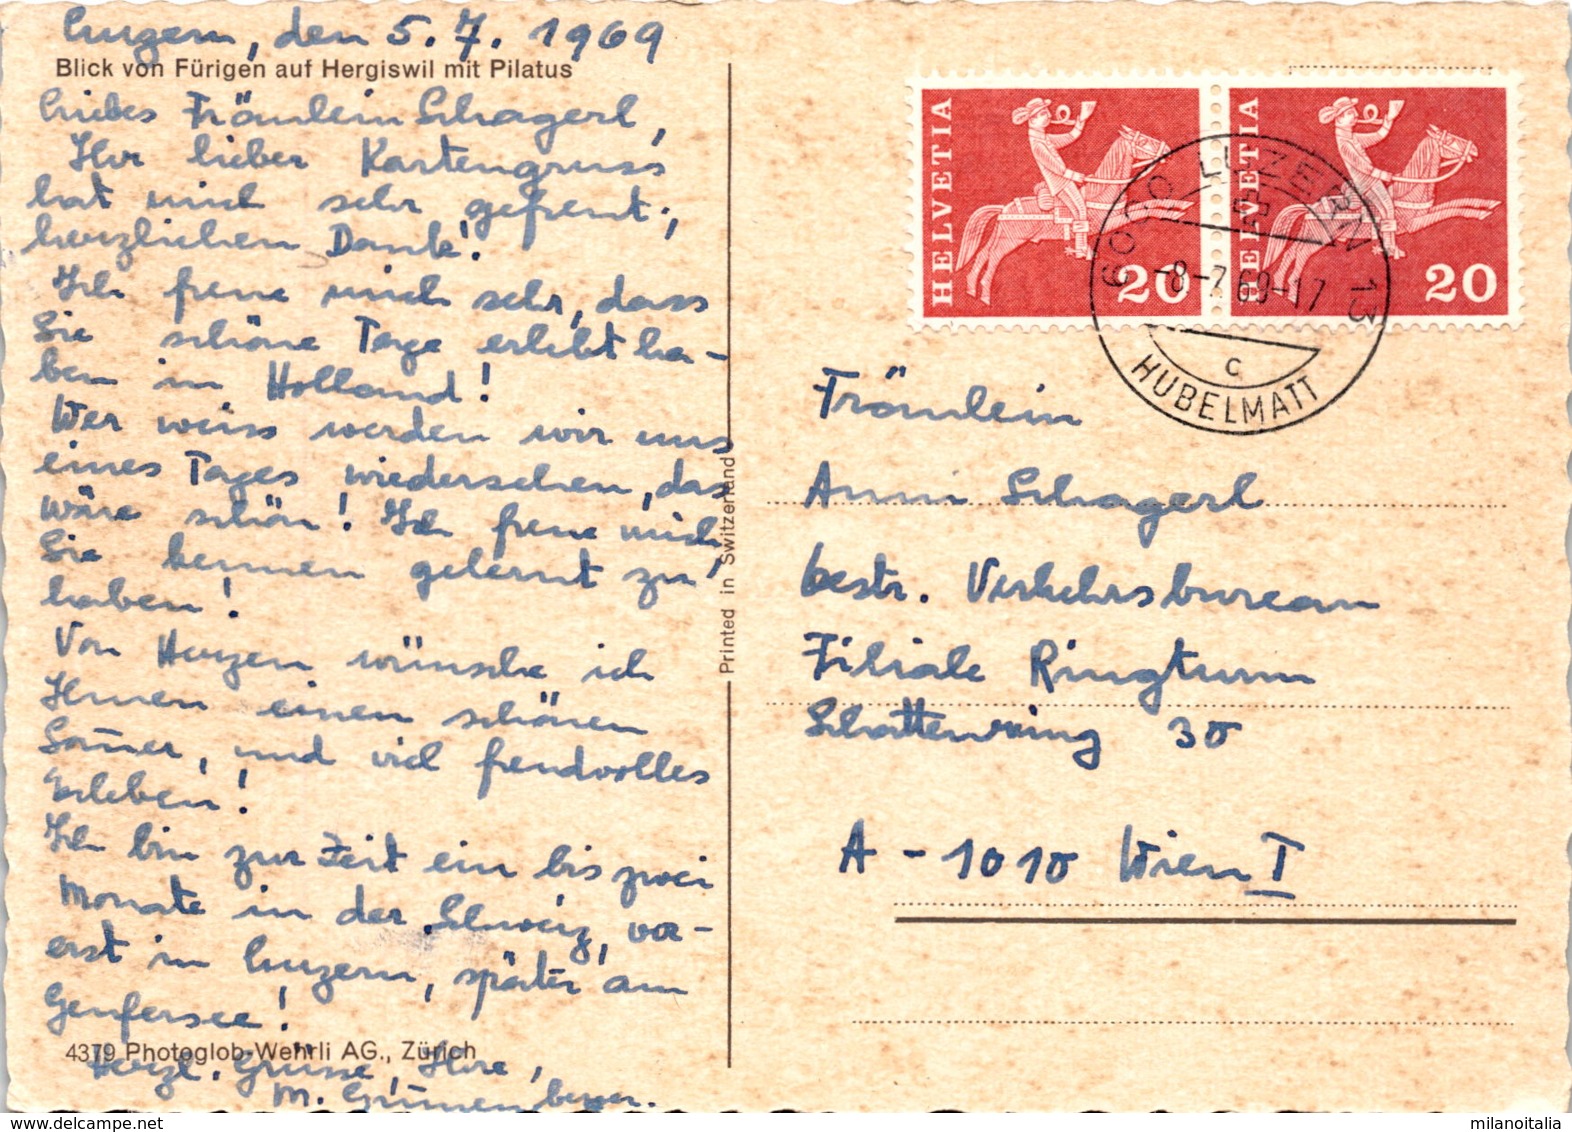 Luzern, den 5.7.1969
Blick von Fürigen auf Hergiswil mit Pilatus
Liebes Fräulein Schagerl,
Ihr lieber Kartengruss
hat mich sehr gefreut;,
herzlichen Dank!
Ich freue mich sehr, dass
Sie schöne Tage erlebt ha-
ben in Holland!
Wer weiss werden wir uns
eines Tages wiedersehen, das
wäre schön! Ich freue mich,
Sie kennen gelernt zu
haben!
Von Herzen wünsche ich
Ihnen einen schönen
Som̅er, und viel freudvolles
Erleben!
Ich bin zur Zeit ein bis zwei
Monate in der Schweiz, vor-
erst in Luzern, später am
Genfersee!
4379 Photoglob-Wehrli AG., Zürich
Herzl. Grüsse, Ihre,
M.
Printed in Switzerland
HELVETIA 20
HELVETIA 20
6000 LUZERN 13
-8-7.69-17
C
HUBELMATT
Fräulein
Anni Schagerl
bestr. Verkehrsbureau
Filiale Ringturm
Schottenring 30
A-1010 Wien I
milanoitalia